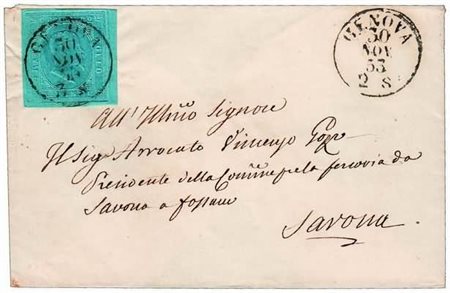 GENOVA
30
NOV
53
2 S
GENOVA
30
NOV
53
2 S
All' Illmo Signore
Il Sigr Avvocato Vincenzo
Presidente della Comme pela ferrovia da
Savona a Fossano
Savona